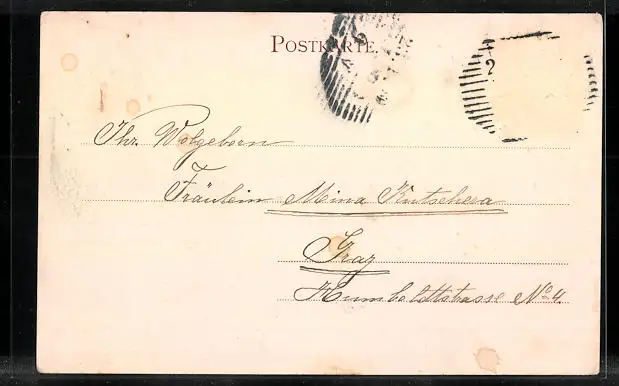 POSTKARTE.
2
Ihr. Wolgeborn
Fräulein Mina Kutschera
Graz
Humboldtstrasse No 4.